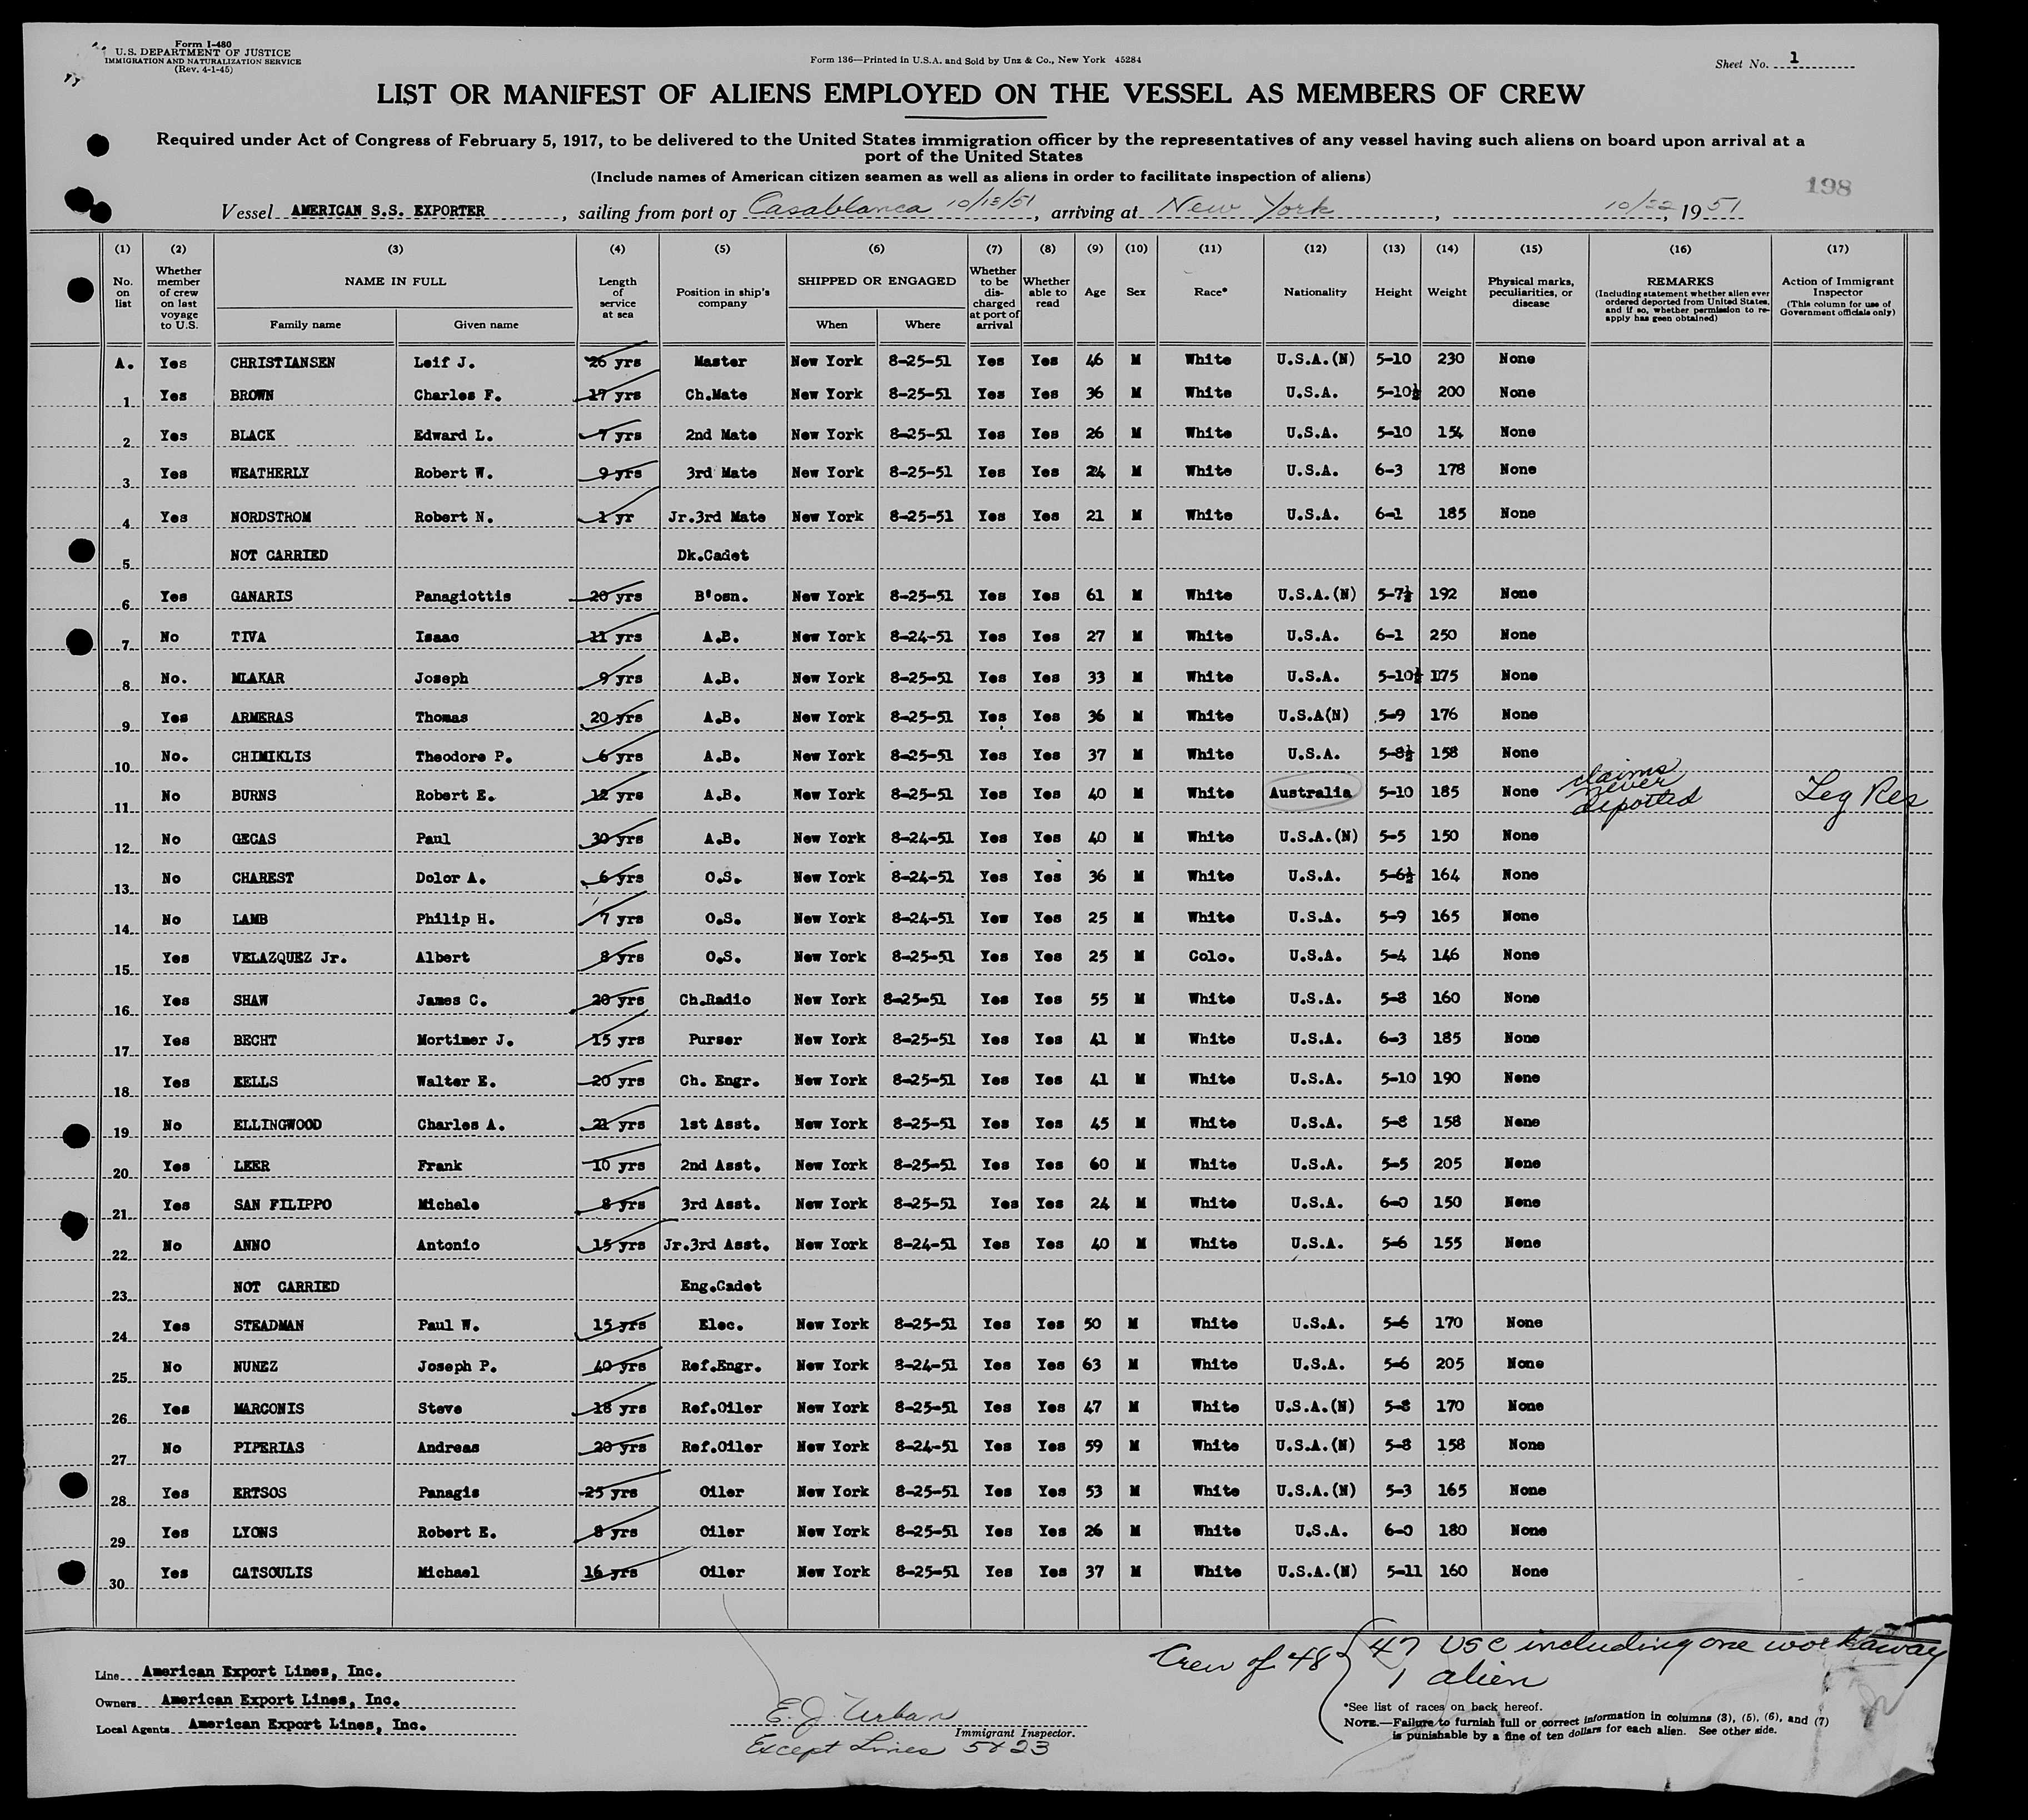 Form I-480
U.S. DEPARTMENT OF JUSTICE
IMMIGRATION AND NATURALIZATION SERVICE
(Rev. 4-1-45)
Form 136—Printed in U.S.A. and Sold by Unz & Co., New York 45284
Sheet No. 1
LIST OR MANIFEST OF ALIENS EMPLOYED ON THE VESSEL AS MEMBERS OF CREW
Required under Act of Congress of February 5, 1917, to be delivered to the United States immigration officer by the representatives of any vessel having such aliens on board upon arrival at a
port of the United States
(Include names of American citizen seamen as well as aliens in order to facilitate inspection of aliens)
198
Vessel AMERICAN S.S. EXPORTER, sailing from port of Casablanca 10/13/51, arriving at New York, 10/22, 1951
(1) (2) (3) (4) (5) (6) (7) (8) (9) (10) (11) (12) (13) (14) (15) (16) (17)
No. on list
Whether member of crew on last voyage to U.S.
NAME IN FULL
Family name
Given name
Length of service at sea
Position in ship's company
SHIPPED OR ENGAGED
When
Where
Whether to be discharged at port of arrival
Whether able to read
Age
Sex
Race*
Nationality
Height
Weight
Physical marks, peculiarities, or disease
REMARKS
(Including statement whether alien ever ordered deported from United States, and if so, whether permission to re-apply has been obtained)
Action of Immigrant Inspector
(This column for use of Government officials only)
A. Yes CHRISTIANSEN Leif J. 26 yrs Master New York 8-25-51 Yes Yes 46 M White U.S.A.(N) 5-10 230 None
1 Yes BROWN Charles F. 17 yrs Ch.Mate New York 8-25-51 Yes Yes 36 M White U.S.A. 5-10½ 200 None
2 Yes BLACK Edward L. 7 yrs 2nd Mate New York 8-25-51 Yes Yes 26 M White U.S.A. 5-10 154 None
3 Yes WEATHERLY Robert W. 9 yrs 3rd Mate New York 8-25-51 Yes Yes 24 M White U.S.A. 6-3 178 None
4 Yes NORDSTROM Robert N. 1 yr Jr.3rd Mate New York 8-25-51 Yes Yes 21 M White U.S.A. 6-1 185 None
5 NOT CARRIED Dk.Cadet
6 Yes GANARIS Panagiottis 20 yrs B'osn. New York 8-25-51 Yes Yes 61 M White U.S.A.(N) 5-7½ 192 None
7 No TIVA Isaac 11 yrs A.B. New York 8-24-51 Yes Yes 27 M White U.S.A. 6-1 250 None
8 No. MLAKAR Joseph 9 yrs A.B. New York 8-25-51 Yes Yes 33 M White U.S.A. 5-10½ 175 None
9 Yes ARMERAS Thomas 20 yrs A.B. New York 8-25-51 Yes Yes 36 M White U.S.A(N) 5-9 176 None
10 No. CHIMIKLIS Theodore P. 6 yrs A.B. New York 8-25-51 Yes Yes 37 M White U.S.A. 5-8½ 158 None
11 No BURNS Robert E. 12 yrs A.B. New York 8-25-51 Yes Yes 40 M White Australia 5-10 185 None claims never deported Leg Res
12 No GECAS Paul 30 yrs A.B. New York 8-24-51 Yes Yes 40 M White U.S.A.(N) 5-5 150 None
13 No CHAREST Dolor A. 6 yrs O.S. New York 8-24-51 Yes Yes 36 M White U.S.A. 5-6½ 164 None
14 No LAMB Philip H. 7 yrs O.S. New York 8-24-51 Yew Yes 25 M White U.S.A. 5-9 165 None
15 Yes VELAZQUEZ Jr. Albert 8 yrs O.S. New York 8-25-51 Yes Yes 25 M Colo. U.S.A. 5-4 146 None
16 Yes SHAW James C. 20 yrs Ch.Radio New York 8-25-51 Yes Yes 55 M White U.S.A. 5-8 160 None
17 Yes BECHT Mortimer J. 15 yrs Purser New York 8-25-51 Yes Yes 41 M White U.S.A. 6-3 185 None
18 Yes EELLS Walter E. 20 yrs Ch. Engr. New York 8-25-51 Yes Yes 41 M White U.S.A. 5-10 190 None
19 No ELLINGWOOD Charles A. 21 yrs 1st Asst. New York 8-25-51 Yes Yes 45 M White U.S.A. 5-8 158 None
20 Yes LEER Frank 10 yrs 2nd Asst. New York 8-25-51 Yes Yes 60 M White U.S.A. 5-5 205 None
21 Yes SAN FILIPPO Michele 8 yrs 3rd Asst. New York 8-25-51 Yes Yes 24 M White U.S.A. 6-0 150 None
22 No ANNO Antonio 15 yrs Jr.3rd Asst. New York 8-24-51 Yes Yes 40 M White U.S.A. 5-6 155 None
23 NOT CARRIED Eng.Cadet
24 Yes STEADMAN Paul W. 15 yrs Elec. New York 8-25-51 Yes Yes 50 M White U.S.A. 5-6 170 None
25 No NUNEZ Joseph P. 40 yrs Ref.Engr. New York 8-24-51 Yes Yes 63 M White U.S.A. 5-6 205 None
26 Yes MARGONIS Steve 18 yrs Ref.Oiler New York 8-25-51 Yes Yes 47 M White U.S.A.(N) 5-8 170 None
27 No PIPERIAS Andreas 20 yrs Ref.Oiler New York 8-24-51 Yes Yes 59 M White U.S.A.(N) 5-8 158 None
28 Yes ERTSOS Panagis 25 yrs Oiler New York 8-25-51 Yes Yes 53 M White U.S.A.(N) 5-3 165 None
29 Yes LYONS Robert E. 8 yrs Oiler New York 8-25-51 Yes Yes 26 M White U.S.A. 6-0 180 None
30 Yes CATSOULIS Michael 16 yrs Oiler New York 8-25-51 Yes Yes 37 M White U.S.A.(N) 5-11 160 None
Crew of 48 { 47 USC including one workaway
1 alien
Line American Export Lines, Inc.
Owners American Export Lines, Inc.
Local Agents American Export Lines, Inc.
E. J. Urban
Immigrant Inspector.
Except Lines 5 & 23
*See list of races on back hereof.
NOTE.—Failure to furnish full or correct information in columns (3), (5), (6), and (7)
is punishable by a fine of ten dollars for each alien. See other side.